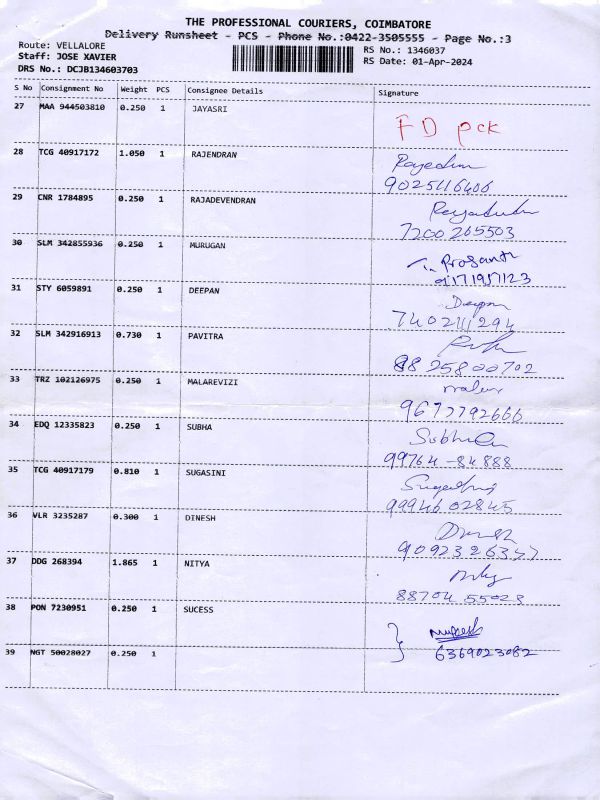 THE PROFESSIONAL COURIERS, COIMBATORE
Delivery Runsheet - PCS - Phone No.:0422-3505555 - Page No.:3
Route: VELLALORE
RS No.: 1346037
Staff: JOSE XAVIER
RS Date: 01-Apr-2024
DRS No.: DCJB134603703
S No Consignment No Weight PCS Consignee Details Signature
27 MAA 944503810 0.250 1 JAYASRI
FD pck
28 TCG 40917172 1.050 1 RAJENDRAN
29 CNR 1784895 0.250 1 RAJADEVENDRAN
7200265503
30 SLM 342855936 0.250 1 MURUGAN
31 STY 6059891 0.250 1 DEEPAN
32 SLM 342916913 0.730 1 PAVITRA
8825800702
33 TRZ 102126975 0.250 1 MALAREVIZI
34 EDQ 12335823 0.250 1 SUBHA
99764-84888
35 TCG 40917179 0.810 1 SUGASINI
9994602845
36 VLR 3235287 0.300 1 DINESH
37 DDG 268394 1.865 1 NITYA
88704 55023
38 PON 7230951 0.250 1 SUCESS
6369023082
39 NGT 50028027 0.250 1